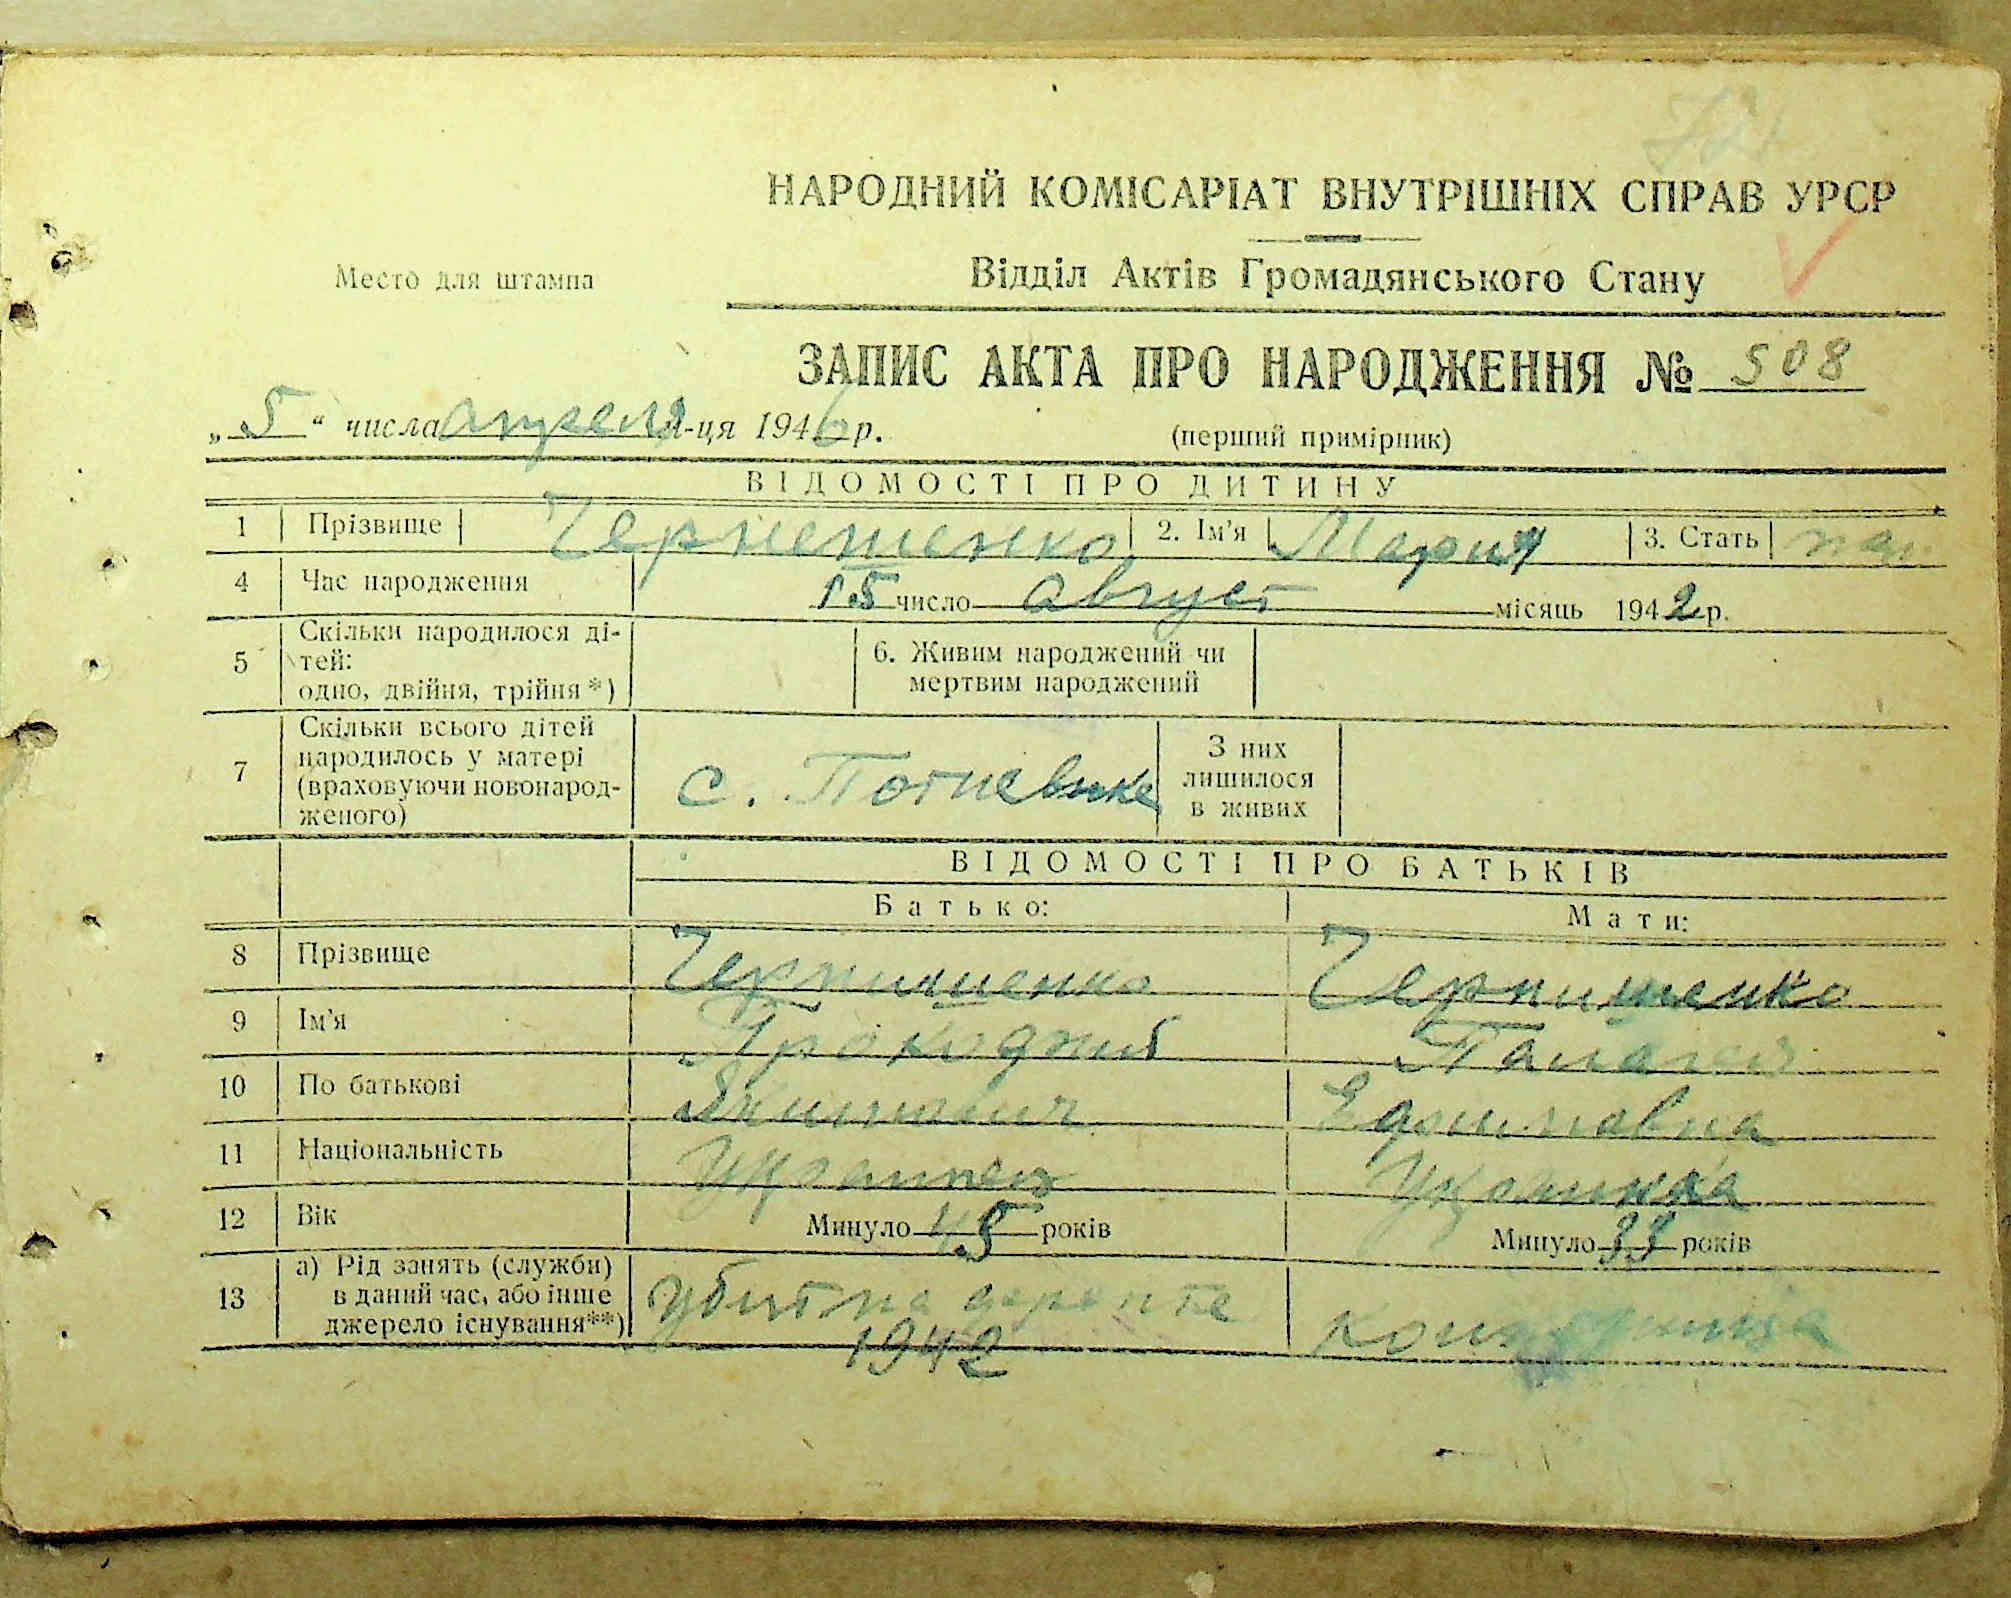 НАРОДНИЙ КОМІСАРІАТ ВНУТРІШНІХ СПРАВ УРСР
Место для штампа
Відділ Актів Громадянського Стану
ЗАПИС АКТА ПРО НАРОДЖЕННЯ № 508
„5“ числа апреля м-ця 1946 р.
(перший примірник)
ВІДОМОСТІ ПРО ДИТИНУ
1 Прізвище Чернешенко 2. Ім'я Мария 3. Стать
4 Час народження 15 число август місяць 1942 р.
5 Скільки народилося ді-
тей:
одно, двійня, трійня *)
6. Живим народжений чи
мертвим народжений
7 Скільки всього дітей
народилось у матері
(враховуючи новонарод-
женого)
с.
З них
лишилося
в живих
ВІДОМОСТІ ПРО БАТЬКІВ
Батько: Мати:
8 Прізвище Чернишенко Чернишенко
9 Ім'я
10 По батькові Якимович Ефимовна
11 Національність Украинец Украинка
12 Вік Минуло 45 років Минуло 33 років
13 а) Рід занять (служби)
в даний час, або інше
джерело існування**)
Убит на фронте
1942